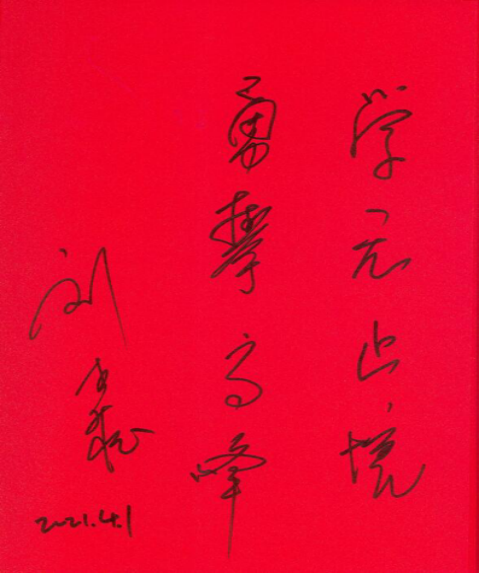 学无止境
勇攀高峰
刘
2021.4.1